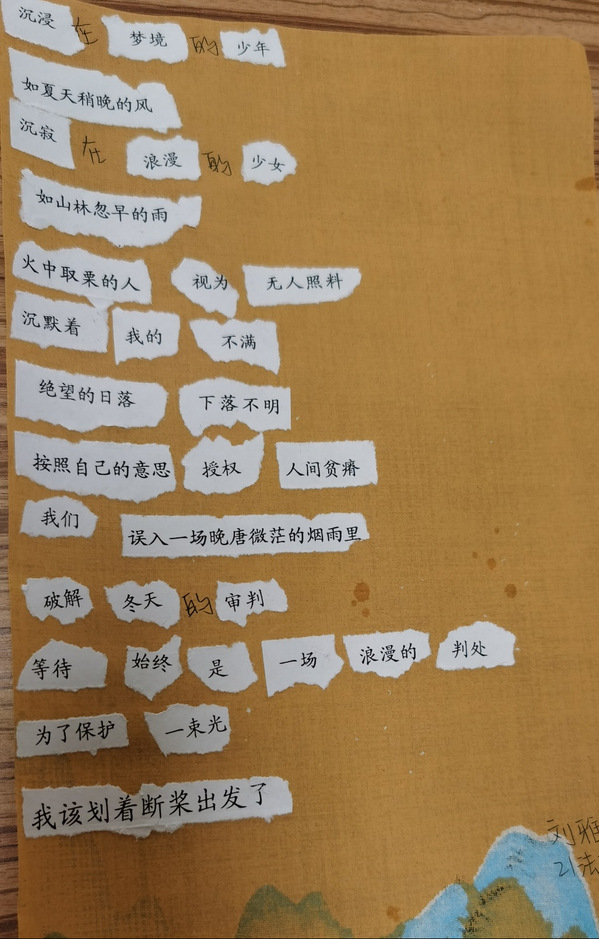 沉浸在梦境的少年
如夏天稍晚的风
沉寂在浪漫的少女
如山林忽早的雨
火中取栗的人 视为 无人照料
沉默着 我的 不满
绝望的日落 下落不明
按照自己的意思 授权 人间贫瘠
我们 误入一场晚唐微茫的烟雨里
破解 冬天的审判
等待 始终 是 一场 浪漫的 判处
为了保护 一束光
我该划着断桨出发了
刘雅
21法